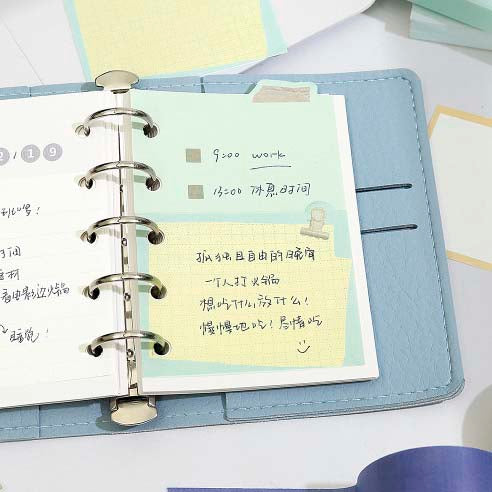 2 / 1 9
到心写!
时间
看电影边火锅
睡觉!
9:00 work
13:00 休息时间
孤独且自由的晚间
一个人打火锅
想吃什么放什么!
慢慢地吃! 尽情吃